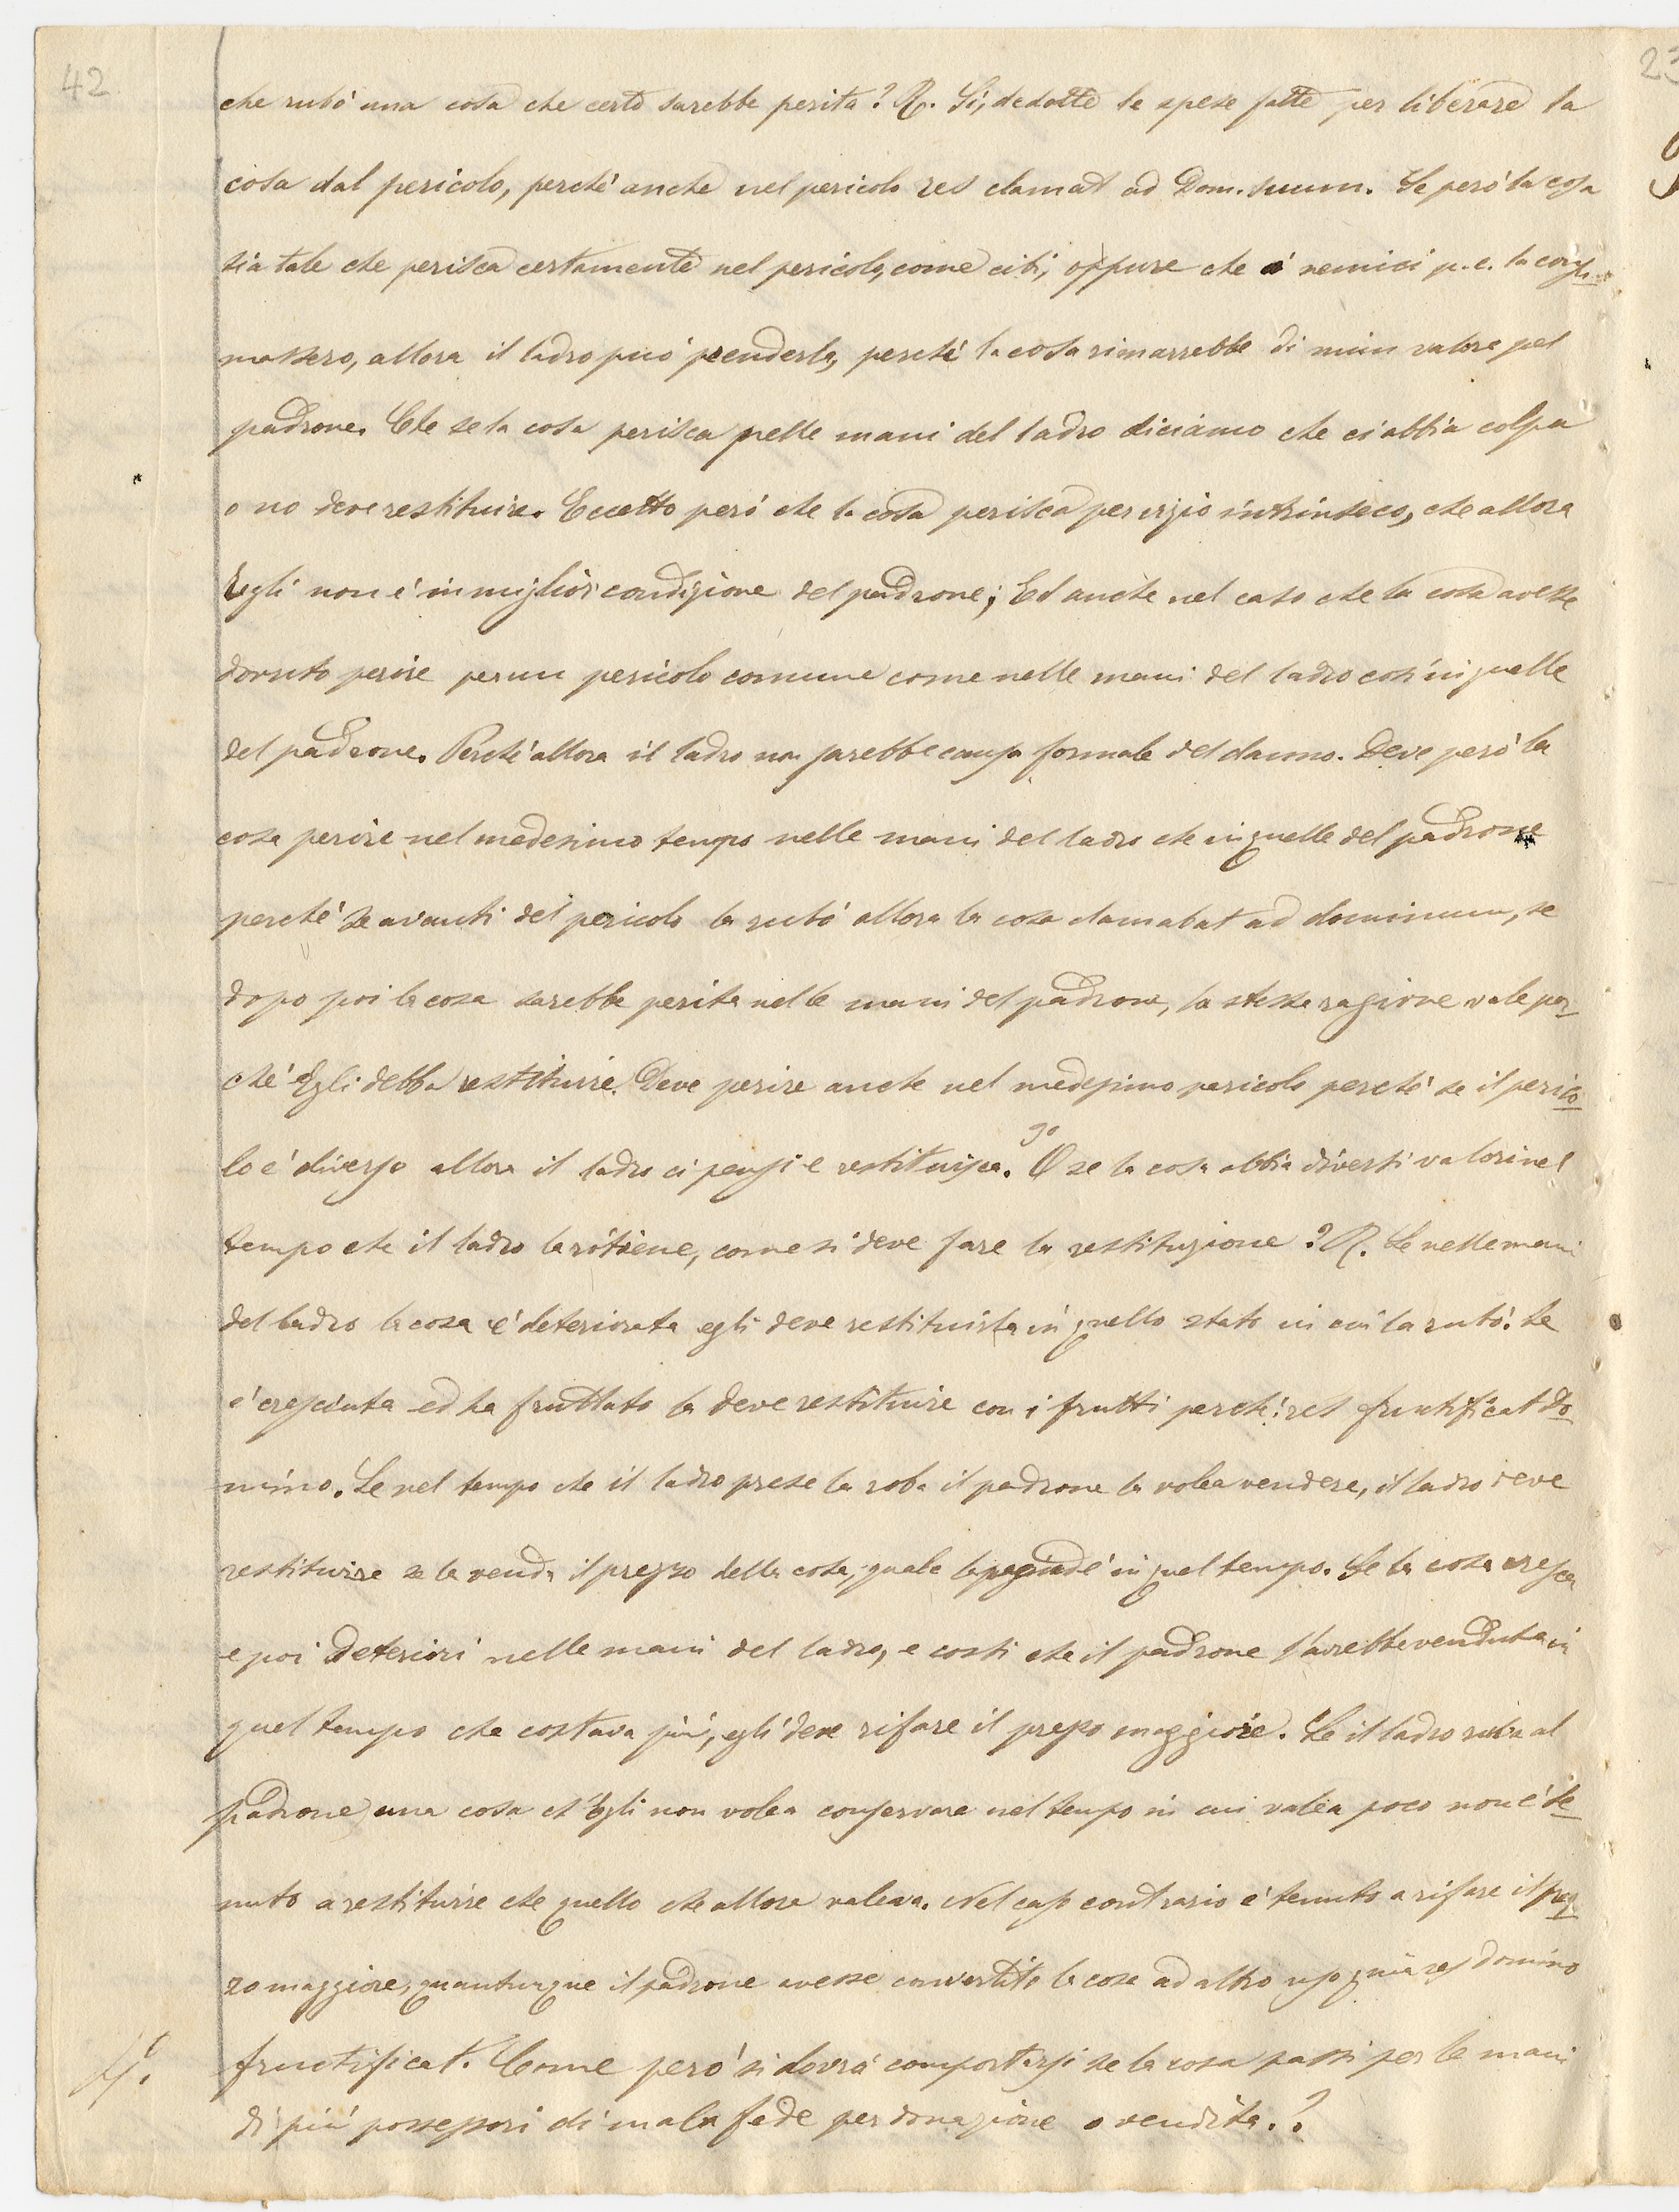 42
che rubò una cosa che certo sarebbe perita? R. Sì, dedotte le spese fatte per liberare la
cosa dal pericolo, perché anche nel pericolo res clamat ad Dom. suum. Se però la cosa
sia tale che perisca certamente nel pericolo, come cibi, oppure che i nemici p.e. la consu-
massero, allora il ladro può prenderla, perché la cosa rimarrebbe di niun valore pel
padrone. Che se la cosa perisca nelle mani del ladro diciamo che ci abbia colpa
o no deve restituire. Eccetto però che la cosa perisca per vizio intrinseco, che allora
Egli non é in miglior condizione del padrone; Ed anche nel caso che la cosa avesse
dovuto perire per un pericolo comune come nelle mani del ladro così in quelle
del padrone. Perché allora il ladro non sarebbe causa formale del danno. Deve però la
cosa perire nel medesimo tempo nelle mani del ladro che in quelle del padrone
perché se avanti del pericolo la rubò allora la cosa clamabat ad dominum, se
dopo poi la cosa sarebbe perita nelle mani del padrone, la stessa ragione vale per-
ché Egli debba restituire. Deve perire anche nel medesimo pericolo perché se il perico-
lo é diverso allora il ladro ci pensi e restituisca. 3º O se la cosa abbia diversi valori nel
tempo che il ladro la ritiene, come si deve fare la restituzione? R. Se nelle mani
del ladro la cosa é deteriorata egli deve restituirla in quello stato in cui la rubò. Se
é cresciuta ed ha fruttato la deve restituire con i frutti perché: res fructificat do-
mino. Se nel tempo che il ladro prese la roba il padrone la volea vendere, il ladro deve
restituire se la vende il prezzo della cosa, quale in quel tempo. Se la cosa cresca
e poi deteriori nelle mani del ladro, e costi che il padrone l'avrebbe venduta in
quel tempo che costava più, egli deve rifare il prezzo maggiore. Se il ladro ruba al
padrone una cosa ch'Egli non volea conservare nel tempo in cui valea poco non é te-
nuto a restituire che quello che allora valeva. Nel caso contrario é tenuto a rifare il prez-
zo maggiore, quantunque il padrone avesse convertito la cosa ad altro uso quia res domino
4º. fructificat. Come però si dovrà comportarsi se la cosa passi per le mani
di più possessori di mala fede per donazione o vendita.?